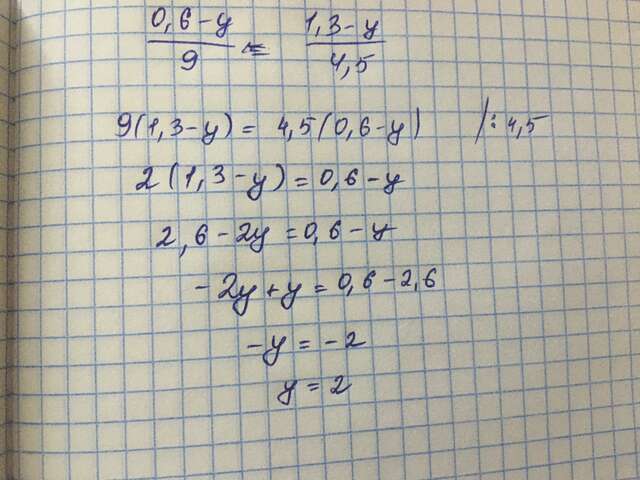 0,6-y/9 = 1,3-y/4,5
9(1,3-y) = 4,5(0,6-y) /: 4,5
2(1,3-y) = 0,6-y
2,6-2y = 0,6-y
-2y+y = 0,6-2,6
-y = -2
y = 2